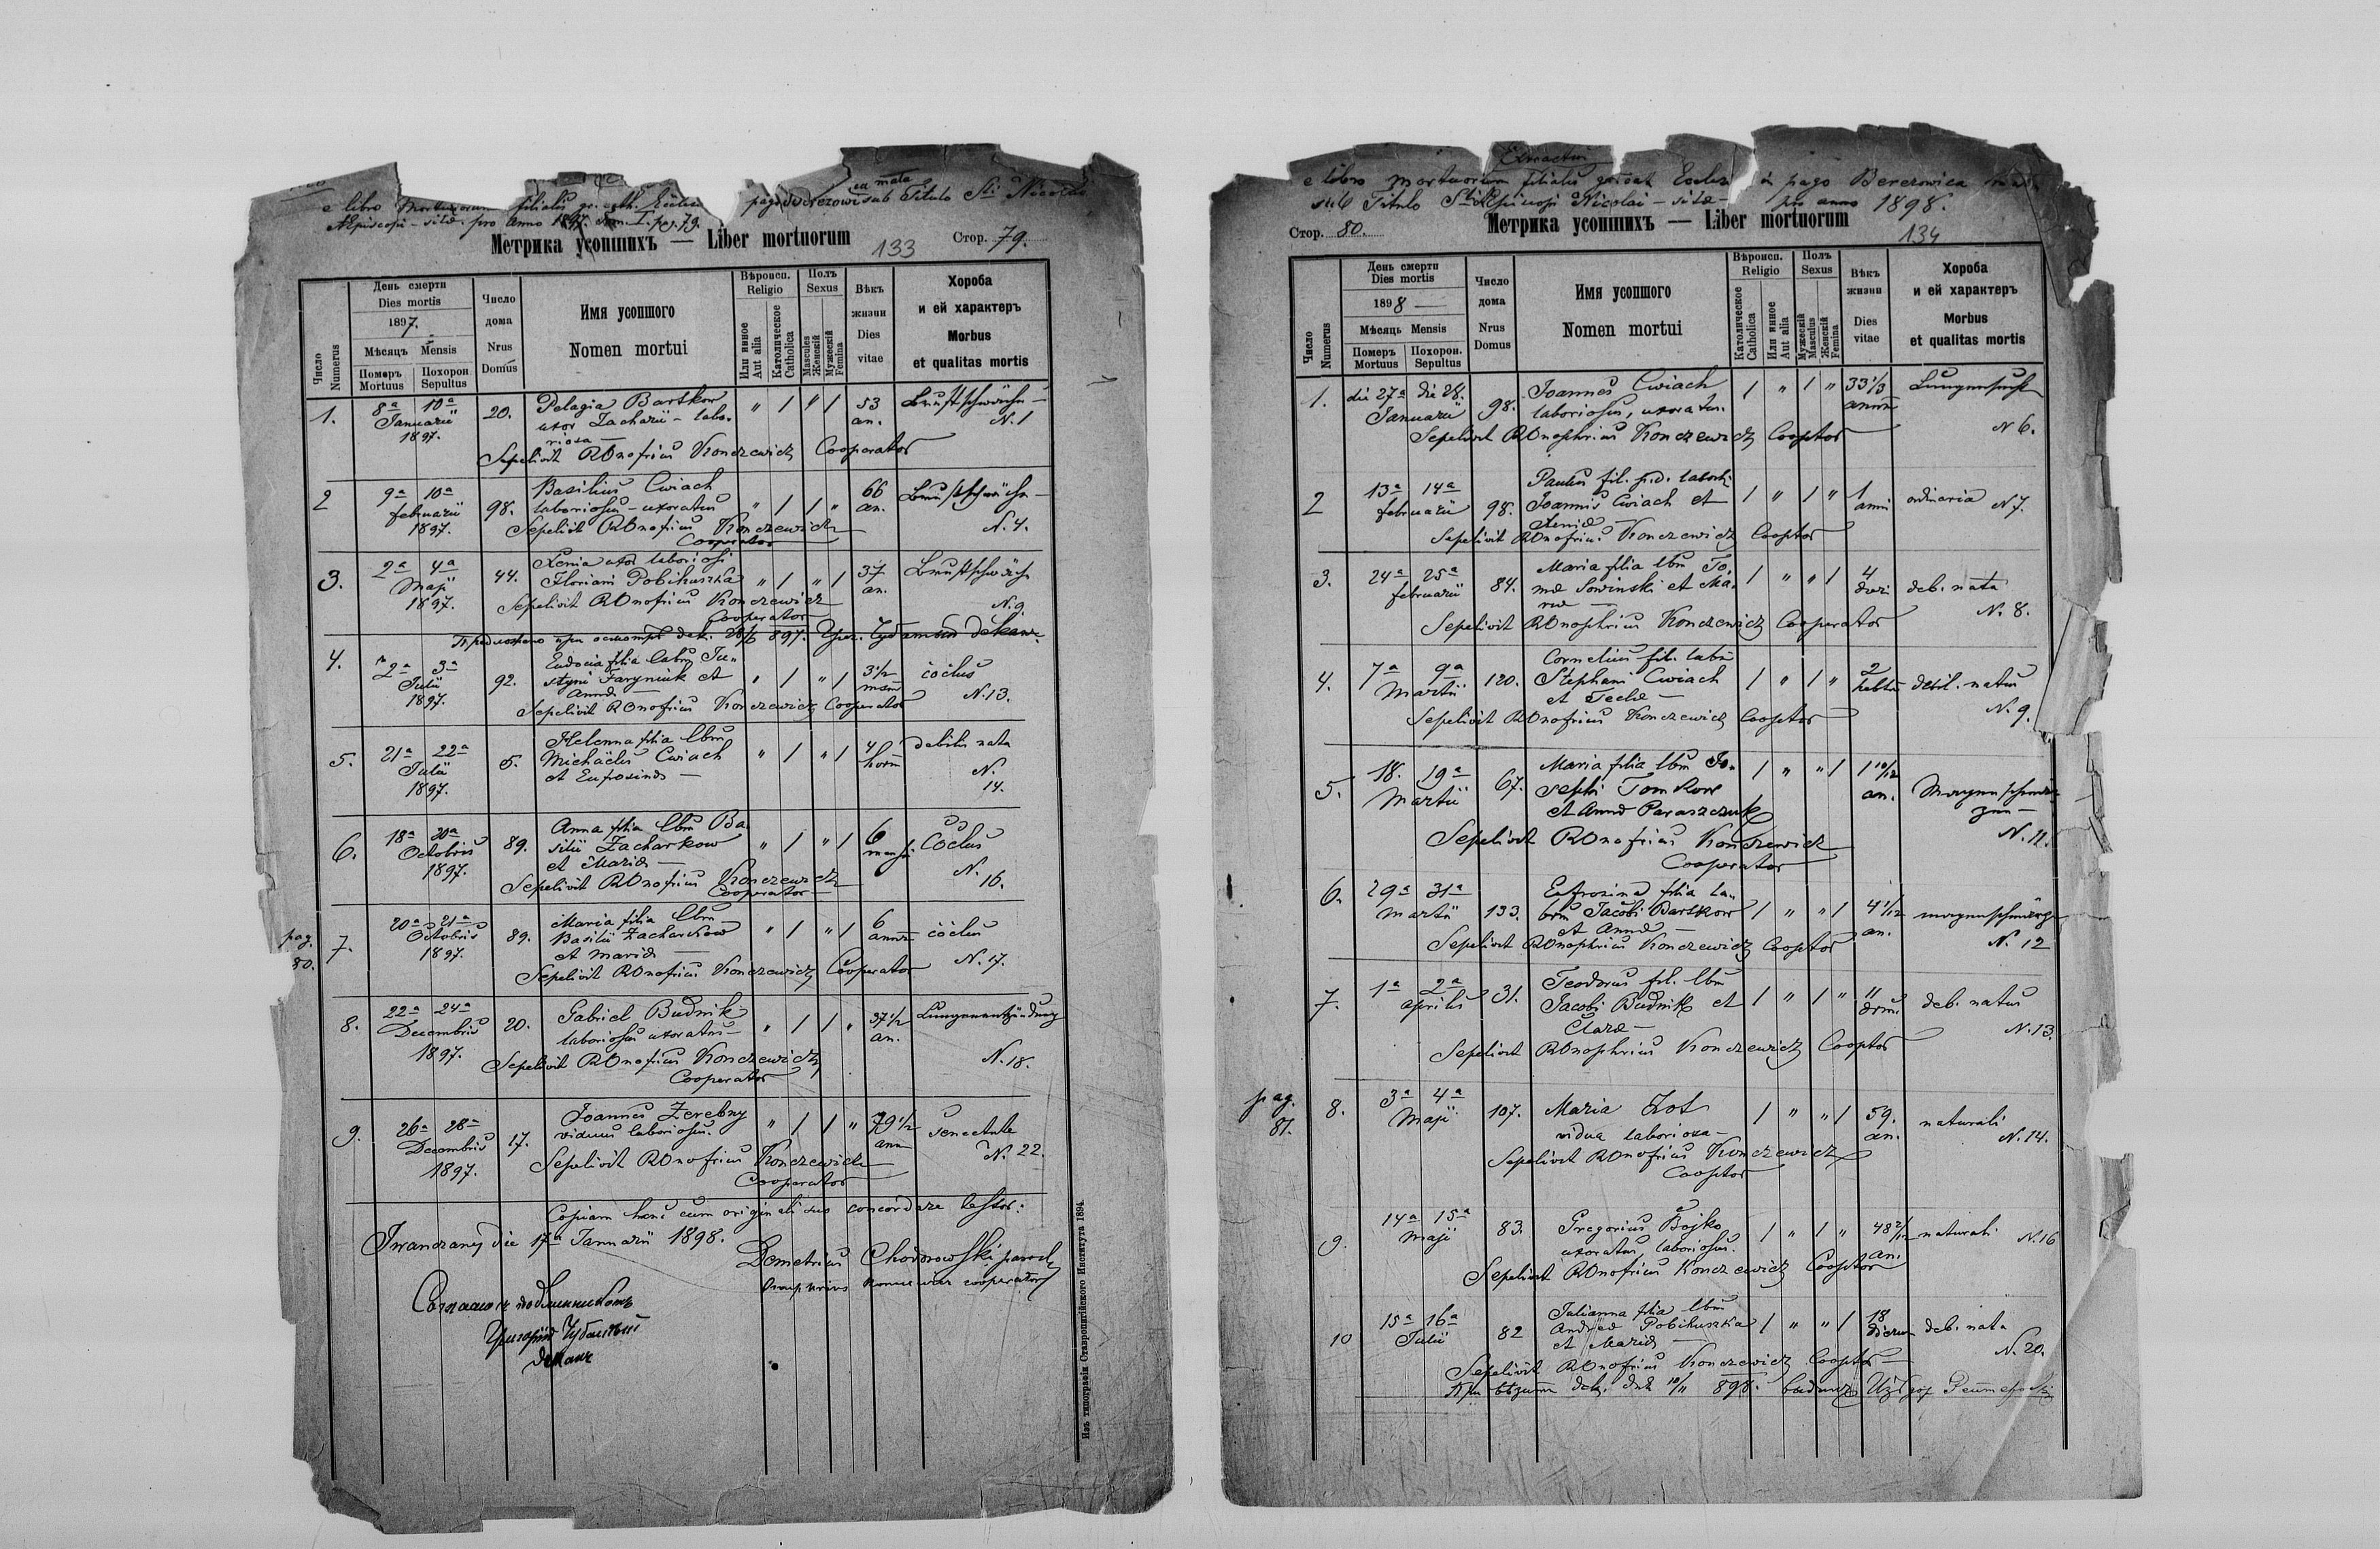 e libro Mortuorum filialis gr. cath. Eccles pago Berezowica mala sub Titulo Sti Nicolai
AEpiscopi - sitae pro anno 1897. Tom. I. pag. 79.
Метрика усопшихъ — Liber mortuorum
133
Стор. 79.
Число
Numerus
День смерти
Dies mortis
1897.
Мѣсяцъ Mensis
Померъ
Mortuus
Похорон
Sepultus
Число
дома
Nrus
Domus
Имя усопшого
Nomen mortui
Вѣроисп.
Religio
Или инное
Aut alia
Католическое
Catholica
Полъ
Sexus
Mascules
Женскій
Мужескій
Femina
Вѣкъ
жизни
Dies
vitae
Хороба
и ей характеръ
Morbus
et qualitas mortis
1. 8a 10a 20. Pelagia Bartkow " / " / 53 Brustschwäche
Januarii uxor Zacharii - labo- an. N. 1
1897. riosa —
Sepelivit R Onofrius Konczewicz Cooperator
2 9a 10a 98. Basilius Cwiach " / / " 66 Brustschwäche
februarii laboriosus - uxoratus an.
1897. Sepelivit R Onofrius Konczewicz N. 4.
Cooperator
3. 2a 4a 44. Xenia uxor laboriosi " / " / 37 Brustschwäche
Maji Floriani Pobihuszka an.
1897. Sepelivit R Onofrius Konczewicz N. 9.
Cooperator
4. 2a 3a 92. Eudocia filia labr. Ju- " / " / 3 1/2 coclus
Julii styni Faryniuk et mens N. 13.
1897. Annae —
Sepelivit R Onofrius Konczewicz Cooperator
5. 21a 22a 5. Helenna filia lbm " / " / 4 debilis nata
Julii Michaelis Cwiach horm N.
1897. et Eufrosinae — 14.
6. 18a 20a 89. Anna filia lbm Ba- " / " / 6 Coclus
Octobris silii Zacharkow mensi N.
1897. et Mariae — 16.
Sepelivit R Onofrius Konczewicz
Cooperator
pag.
80.
7. 20a 21a 89. Maria filia lbm " / " / 6 coclus
Octobris Basilii Zacharkow annor
1897. et Mariae N. 17.
Sepelivit R Onofrius Konczewicz Cooperator
8. 22a 24a 20. Gabriel Budnik " / / " 37 1/2 Lungenentzündung
Decembris laboriosus uxoratus — an.
1897. Sepelivit R Onofrius Konczewicz N. 18.
Cooperator
9. 26a 28a 17. Joannes Zerebny " / / " 79 1/2 senectute
Decembris viduus laboriosus. ann N. 22.
1897. Sepelivit R Onofrius Konczewicz
Cooperator
Copiam hanc cum originali suo concordare testor:
Iwanczany die 17a Januarii 1898.
Demetrius Chodorowski paroch
cooperator
Григорій Чубатый
деканъ
Изъ типографіи Ставропигійского Института 1894.
Extractus
e libro mortuorum filialis gr cat Eccles in pago Berezowica mala
sub Titulo Sti AEpiscopi Nicolai - sitae - pro anno 1898.
Стор. 80.
Метрика усопшихъ — Liber mortuorum
134
Число
Numerus
День смерти
Dies mortis
1898 —
Мѣсяць Mensis
Померъ
Mortuus
Похорон.
Sepultus
Число
дома
Nrus
Domus
Имя усопшого
Nomen mortui
Вѣроисп.
Religio
Католическое
Catholica
Или инное
Aut alia
Полъ
Sexus
Мужескій
Masculus
Женскій
Femina
Вѣкъ
жизни
Dies
vitae
Хороба
и ей характеръ
Morbus
et qualitas mortis
1. die 27a die 28. 98. Joannes Cwiach / " / " 33 1/3 Lungensucht
Januarii laboriosus, uxoratus. annor
Sepelivit R Onophrius Konczewicz Cooptor N 6.
2 13a 14a 98. Paulus fil. p.d. labor / " / " 1 ordinaria N 7.
februarii Joannis Cwiach et anni
Xeniae —
Sepelivit R Onofrius Konczewicz Cooptor
3. 24a 25a 84. Maria filia lbm To- / " " / 4 deb. nata
februarii mae Sowinski et Ma- N. 8.
riae —
Sepelivit R Onophrius Konczewicz Cooperator
4. 7a 9a 120. Cornelius fil. labr / " / " 2 debil. natus
Martii Stephani Cwiach hebd N. 9.
et Teclae —
Sepelivit R Onofrius Konczewicz Cooptor
5. 18. 19a 67. Maria filia lbm Jo- / " " / 1 10/12
Martii sephi Tomkow an.
et Annae Paraszczuk N. 11.
Sepelivit R Onofrius Konczewicz
Cooperator
6. 29a 31a 133. Eufrosina filia la- / " " / 4 1/12
Martii brm Jacobi Bartkow an.
et Annae — N. 12
Sepelivit R Onophrius Konczewicz Cooptor
7. 1a 2a 31. Teodorus fil. lbm / " / " 11 deb. natus
Aprilis Jacobi Budnik et N. 13.
Clarae —
Sepelivit R Onophrius Konczewicz Cooptor
pag.
81.
8. 3a 4a 107. Maria Zot / " " / 59. naturali
Maji vidua laboriosa — an. N. 14.
Sepelivit R Onofrius Konczewicz
Cooptor
9. 14a 15a 83. Gregorius Bojko / " / " 48 2/12 naturali N. 16
Maji uxoratus, laboriosus. an.
Sepelivit R Onofrius Konczewicz Cooptor
10 15a 16a 82 Julianna filia lbm / " " / 18 deb. nata
Julii Andreae Pobihuszka dierum
et Mariae — N. 20.
Sepelivit R Onofrius Konczewicz Cooptor